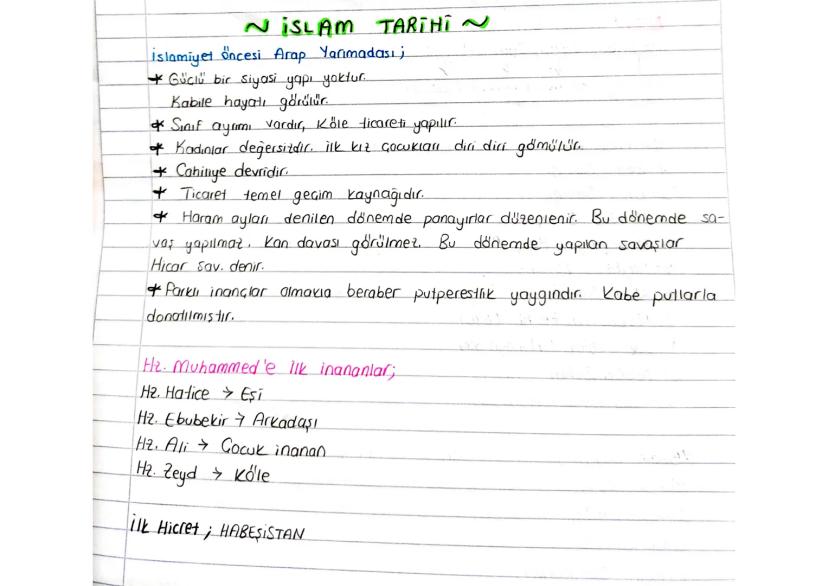 ~ İSLAM TARİHİ ~
İslamiyet öncesi Arap Yarımadası;
* Güçlü bir siyasi yapı yoktur.
Kabile hayatı görülür.
* Sınıf ayrımı vardır, Köle ticareti yapılır.
* Kadınlar değersizdir. İlk kız çocukları diri diri gömülür.
* Cahiliye devridir.
* Ticaret temel geçim kaynağıdır.
* Haram ayları denilen dönemde panayırlar düzenlenir. Bu dönemde sa-
vaş yapılmaz, Kan davası görülmez. Bu dönemde yapılan savaşlar
Hicar sav. denir.
* Farklı inançlar olmakla beraber putperestlik yaygındır. Kabe putlarla
donatılmıştır.
Hz. Muhammed'e ilk inananlar;
Hz. Hatice → Eşi
Hz. Ebubekir → Arkadaşı
Hz. Ali → Çocuk inanan
Hz. Zeyd → Köle
İlk Hicret ; HABEŞİSTAN